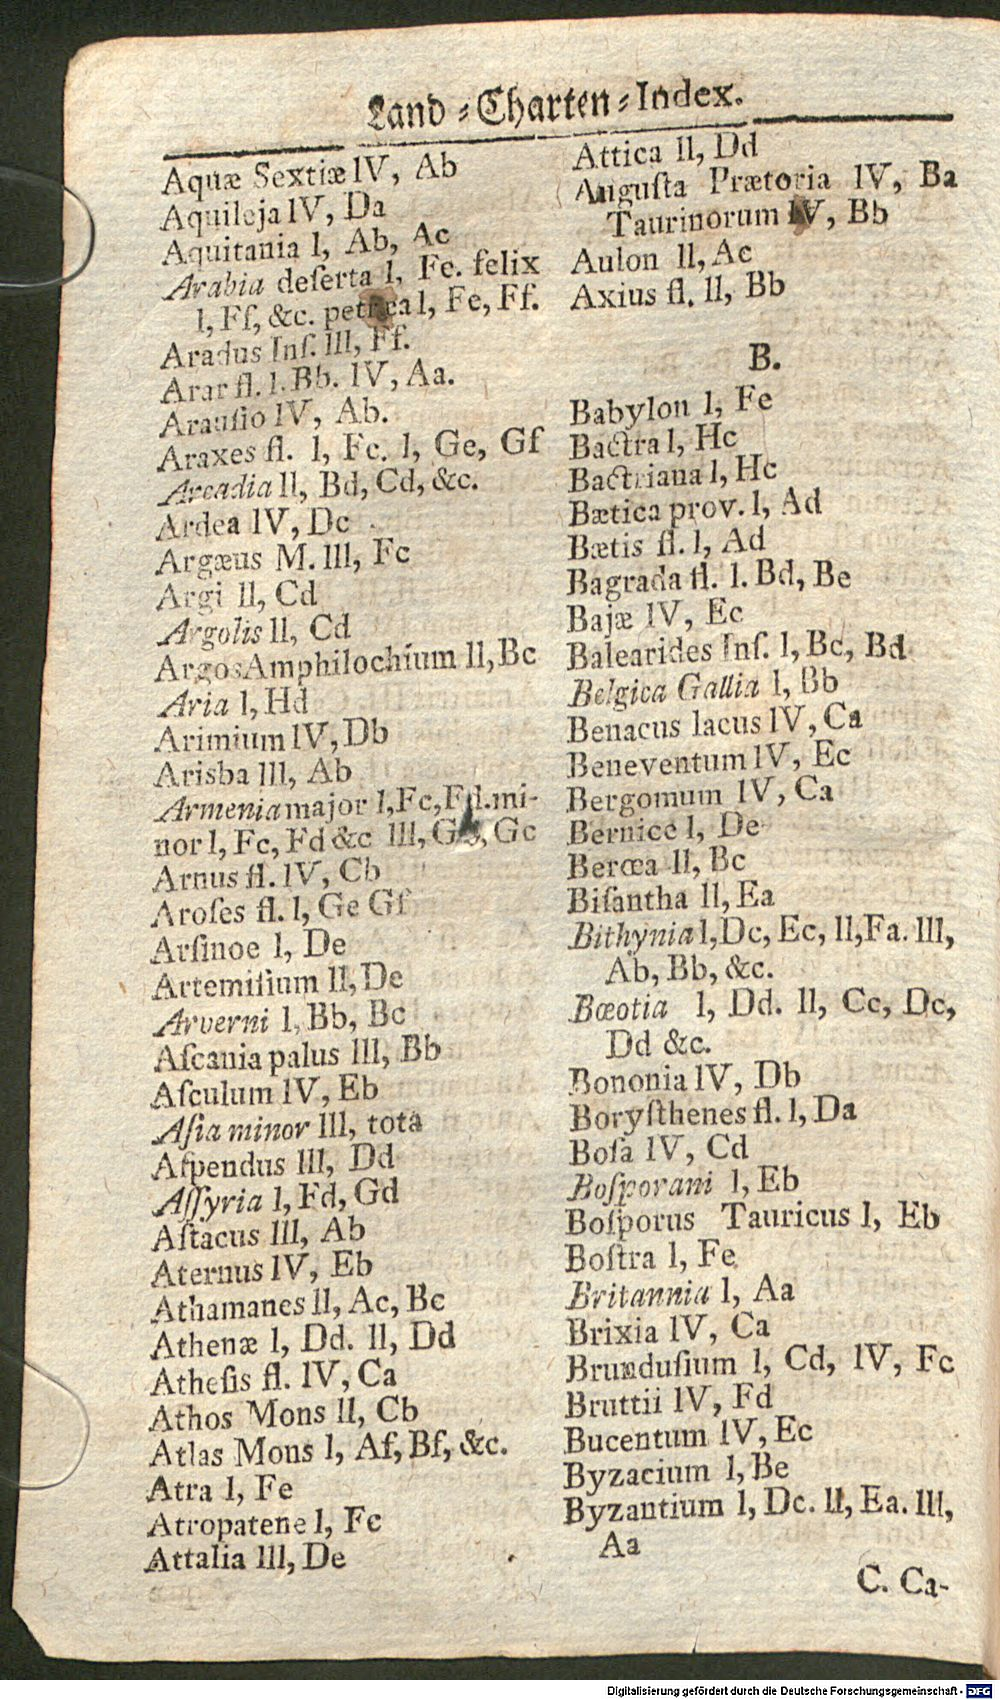 Land-Charten-Index.
Aquæ Sextiæ IV, Ab
Aquileja IV, Da
Aquitania I, Ab, Ac
Arabia deſerta I, Fe. felix
I, Ff, &c. petræa I, Fe, Ff.
Aradus Inſ. III, Ff.
Arar fl. I. Bb. IV, Aa.
Arauſio IV, Ab.
Araxes fl. I, Fc. I, Ge, Gf
Arcadia II, Bd, Cd, &c.
Ardea IV, Dc
Argæus M. III, Fc
Argi II, Cd
Argolis II, Cd
Argos Amphilochium II, Bc
Aria I, Hd
Arimium IV, Db
Arisba III, Ab
Armenia major I, Fc, Fd. mi-
nor I, Fc, Fd &c III, Gc
Arnus fl. IV, Cb
Aroſes fl. I, Ge Gf
Arſinoe I, De
Artemiſium II, De
Arverni I, Bb, Bc
Aſcania palus III, Bb
Aſculum IV, Eb
Aſia minor III, tota
Aſpendus III, Dd
Aſſyria I, Fd, Gd
Aſtacus III, Ab
Aternus IV, Eb
Athamanes II, Ac, Bc
Athenæ I, Dd. II, Dd
Atheſis fl. IV, Ca
Athos Mons II, Cb
Atlas Mons I, Af, Bf, &c.
Atra I, Fe
Atropatene I, Fc
Attalia III, De
Attica II, Dd
Auguſta Prætoria IV, Ba
Taurinorum IV, Bb
Aulon II, Ac
Axius fl. II, Bb
B.
Babylon I, Fe
Bactra I, Hc
Bactriana I, Hc
Bætica prov. I, Ad
Bætis fl. I, Ad
Bagrada fl. I. Bd, Be
Bajæ IV, Ec
Balearides Inſ. I, Bc, Bd
Belgica Gallia I, Bb
Benacus lacus IV, Ca
Beneventum IV, Ec
Bergomum IV, Ca
Bernice I, De
Berœa II, Bc
Biſantha II, Ea
Bithynia I, Dc, Ec, II, Fa. III,
Ab, Bb, &c.
Bœotia I, Dd. II, Cc, Dc,
Dd &c.
Bononia IV, Db
Boryſthenes fl. I, Da
Boſa IV, Cd
Boſporani I, Eb
Boſporus Tauricus I, Eb
Boſtra I, Fe
Britannia I, Aa
Brixia IV, Ca
Brunduſium I, Cd, IV, Fc
Bruttii IV, Fd
Bucentum IV, Ec
Byzacium I, Be
Byzantium I, Dc. II, Ea. III,
Aa
C. Ca-
Digitalisierung gefördert durch die Deutsche Forschungsgemeinschaft - DFG